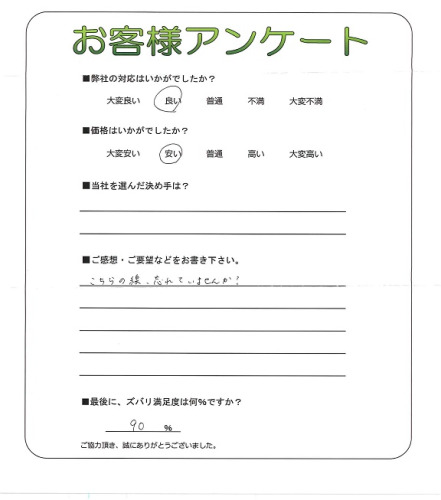 お客様アンケート
■弊社の対応はいかがでしたか？
大変良い 良い 普通 不満 大変不満
■価格はいかがでしたか？
大変安い 安い 普通 高い 大変高い
■当社を選んだ決め手は？
■ご感想・ご要望などをお書き下さい。
こちらの線、忘れていませんか？
■最後に、ズバリ満足度は何%ですか？
90 %
ご協力頂き、誠にありがとうございました。